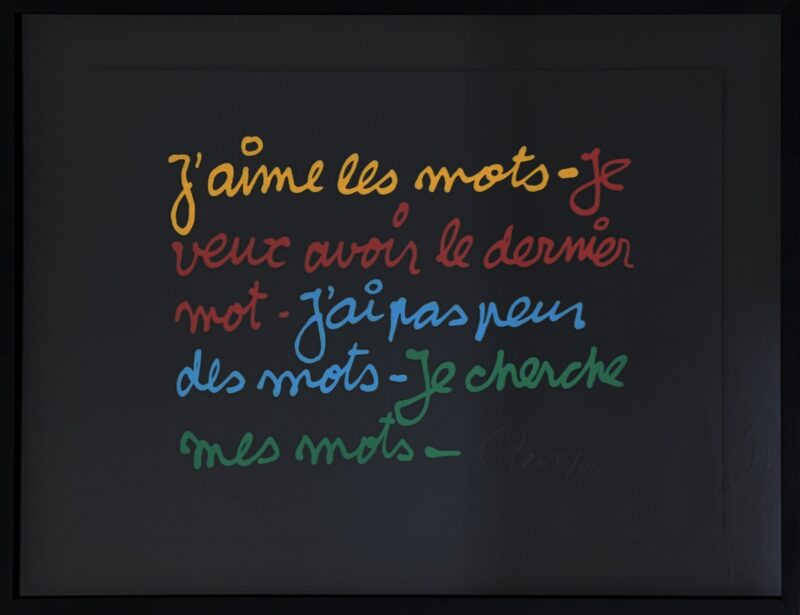 J'aime les mots - Je
veux avoir le dernier
mot - J'ai pas peur
des mots - Je cherche
mes mots -
Ben